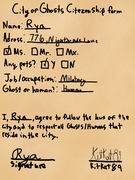 City of Ghosts Citizenship form
Name: Rya
Adress: 776, Nightshade Lane
Ms. Mr. Mx.
Any pets? Y N
Job/occupation: Military
Ghost or human?: Human
I, Rya, agree to follow the laws of the
city and to respect all Ghosts/Humans that
reside in the city.
Rya
Signature
Kitkat89